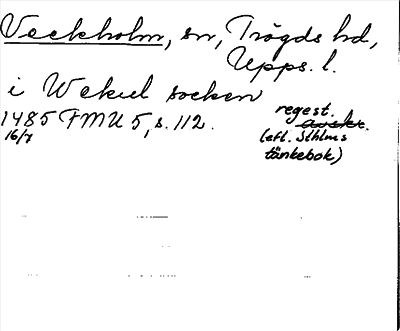 Veckholm, sn, Trögds hd,
Upps. l.
i Wekul socken
1485 FMU 5, s. 112. regest.
16/7 avskr.
(efl. Sthlms
tänkebok)